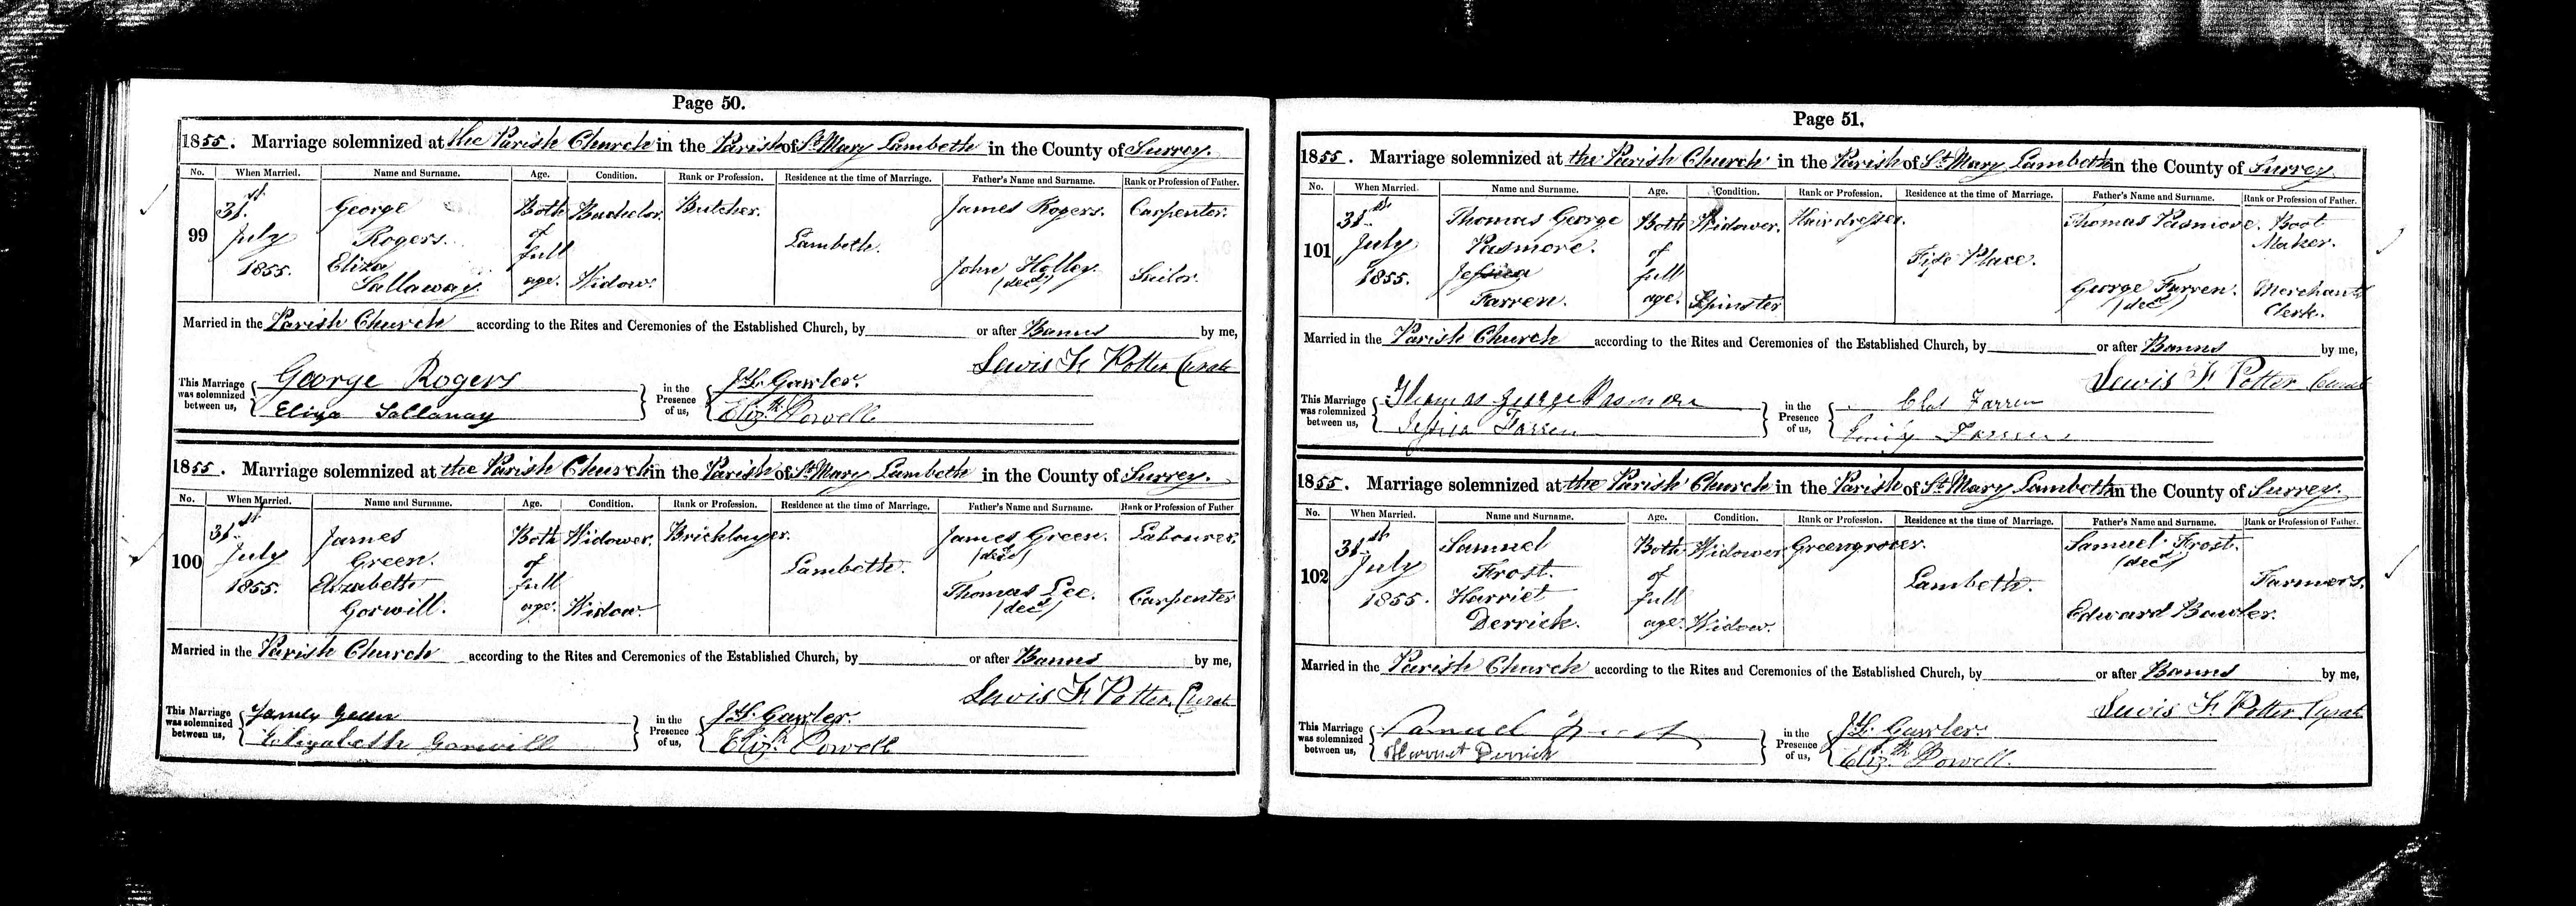 Page 50.
1855. Marriage solemnized at the Parish Church in the Parish of St Mary Lambeth in the County of Surrey.
No. When Married. Name and Surname. Age. Condition. Rank or Profession. Residence at the time of Marriage. Father's Name and Surname. Rank or Profession of Father.
31st George Both Bachelor. Butcher. James Rogers. Carpenter.
99 July Rogers. of Lambeth.
1855. Eliza full John Holley Sailor.
Sallaway. age. Widow. (decd)
Married in the Parish Church according to the Rites and Ceremonies of the Established Church, by or after Banns by me,
Lewis F. Potter Curate
This Marriage was solemnized between us, George Rogers in the Presence of us, J.L. Gawler.
Eliza Sallaway Elizth Powell
1855. Marriage solemnized at the Parish Church in the Parish of St Mary Lambeth in the County of Surrey.
No. When Married. Name and Surname. Age. Condition. Rank or Profession. Residence at the time of Marriage. Father's Name and Surname. Rank or Profession of Father
31st James Both Widower. Bricklayer. James Green. Labourer.
100 July Green. of Lambeth. (decd)
1855. Elizabeth full Thomas Lee. Carpenter
Gorwill. age. Widow. (decd)
Married in the Parish Church according to the Rites and Ceremonies of the Established Church, by or after Banns by me,
Lewis F. Potter. Curate
This Marriage was solemnized between us, James Green in the Presence of us, J.L. Gawler.
Elizabeth Gorwill Elizth Powell
Page 51.
1855. Marriage solemnized at the Parish Church in the Parish of St Mary Lambeth in the County of Surrey
No. When Married. Name and Surname. Age. Condition. Rank or Profession. Residence at the time of Marriage. Father's Name and Surname. Rank or Profession of Father.
31st Thomas George Both Widower. Hairdresser. Thomas Pasmore. Boot
101 July Pasmore. of Fife Place. Maker.
1855. Jessica full George Farren. Merchants
Farren. age. Spinster (decd) Clerk.
Married in the Parish Church according to the Rites and Ceremonies of the Established Church, by or after Banns by me,
Lewis F. Potter Curate
This Marriage was solemnized between us, Thomas George Pasmore in the Presence of us, Farren
Jessica Farren Emily Farren
1855. Marriage solemnized at the Parish Church in the Parish of St Mary Lambeth in the County of Surrey.
No. When Married. Name and Surname. Age. Condition. Rank or Profession. Residence at the time of Marriage. Father's Name and Surname. Rank or Profession of Father.
31st Samuel Both Widower. Greengrocer. Samuel Frost.
102 July Frost. of Lambeth. (decd) Farmers.
1855. Harriet full Edward Bowler.
Derrick. age. Widow.
Married in the Parish Church according to the Rites and Ceremonies of the Established Church, by or after Banns by me,
Lewis F. Potter Curate
This Marriage was solemnized between us, Samuel Frost in the Presence of us, J.L. Gawler.
Harriet Derrick Elizth Powell.